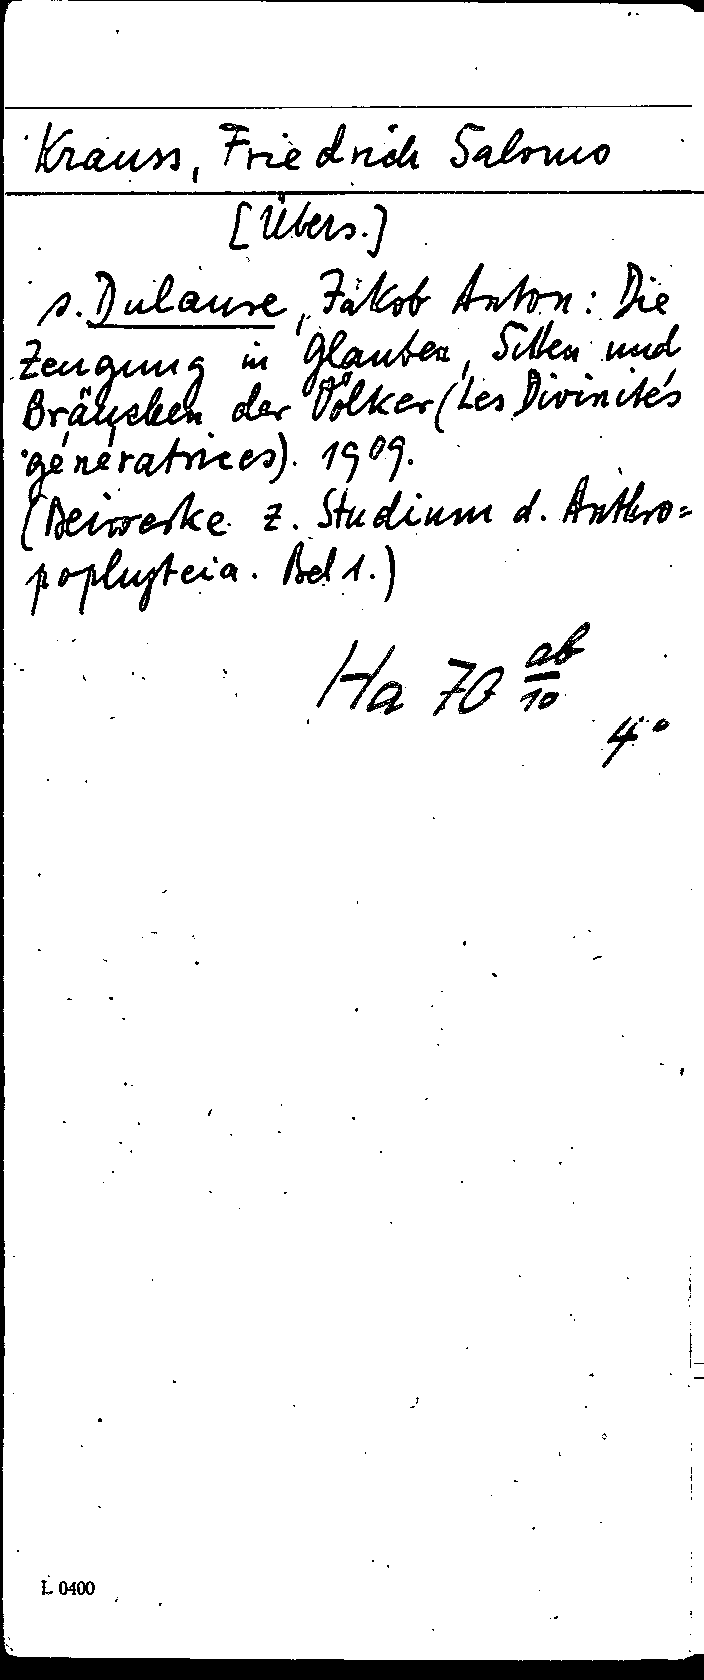 Krauss, Friedrich Salomo
[Übers.]
s. Dulaure, Jakob Anton: Die
Zeugung in Glauben, Sitten und
Bräuchen der Völker (Les Divinités
génératrices). 1909.
(Beiwerke z. Studium d. Anthro=
pophyteia. Bd 1.)
Ha 70 ab/10
4°
L 0400